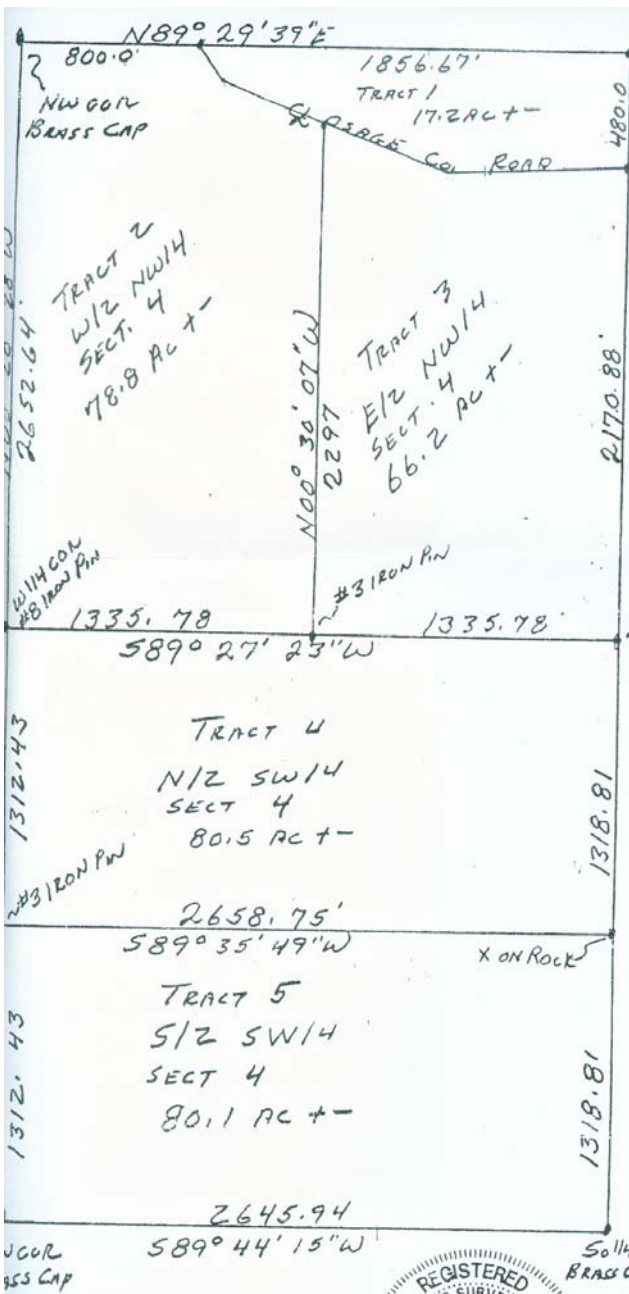 N89° 29' 39" E
800.0'
1856.67'
TRACT 1
17.2 AC + -
480.0
NW COR
BRASS CAP
℄ OSAGE CO. ROAD
2652.64'
TRACT 2
W/2 NW/4
SECT. 4
78.8 AC + -
N00° 30' 07" W
2297
TRACT 3
E/2 NW/4
SECT. 4
66.2 AC + -
2170.88'
W 1/4 COR
#8 IRON PIN
#3 IRON PIN
1335.78
1335.78'
S89° 27' 23" W
1312.43
TRACT 4
N/2 SW/4
SECT 4
80.5 AC + -
1318.81
#3 IRON PIN
2658.75'
S89° 35' 49" W
X ON ROCK
1312.43
TRACT 5
S/2 SW/4
SECT 4
80.1 AC + -
1318.81
2645.94
S89° 44' 15" W
COR
CAP
REGISTERED
So 1/4
BRASS C